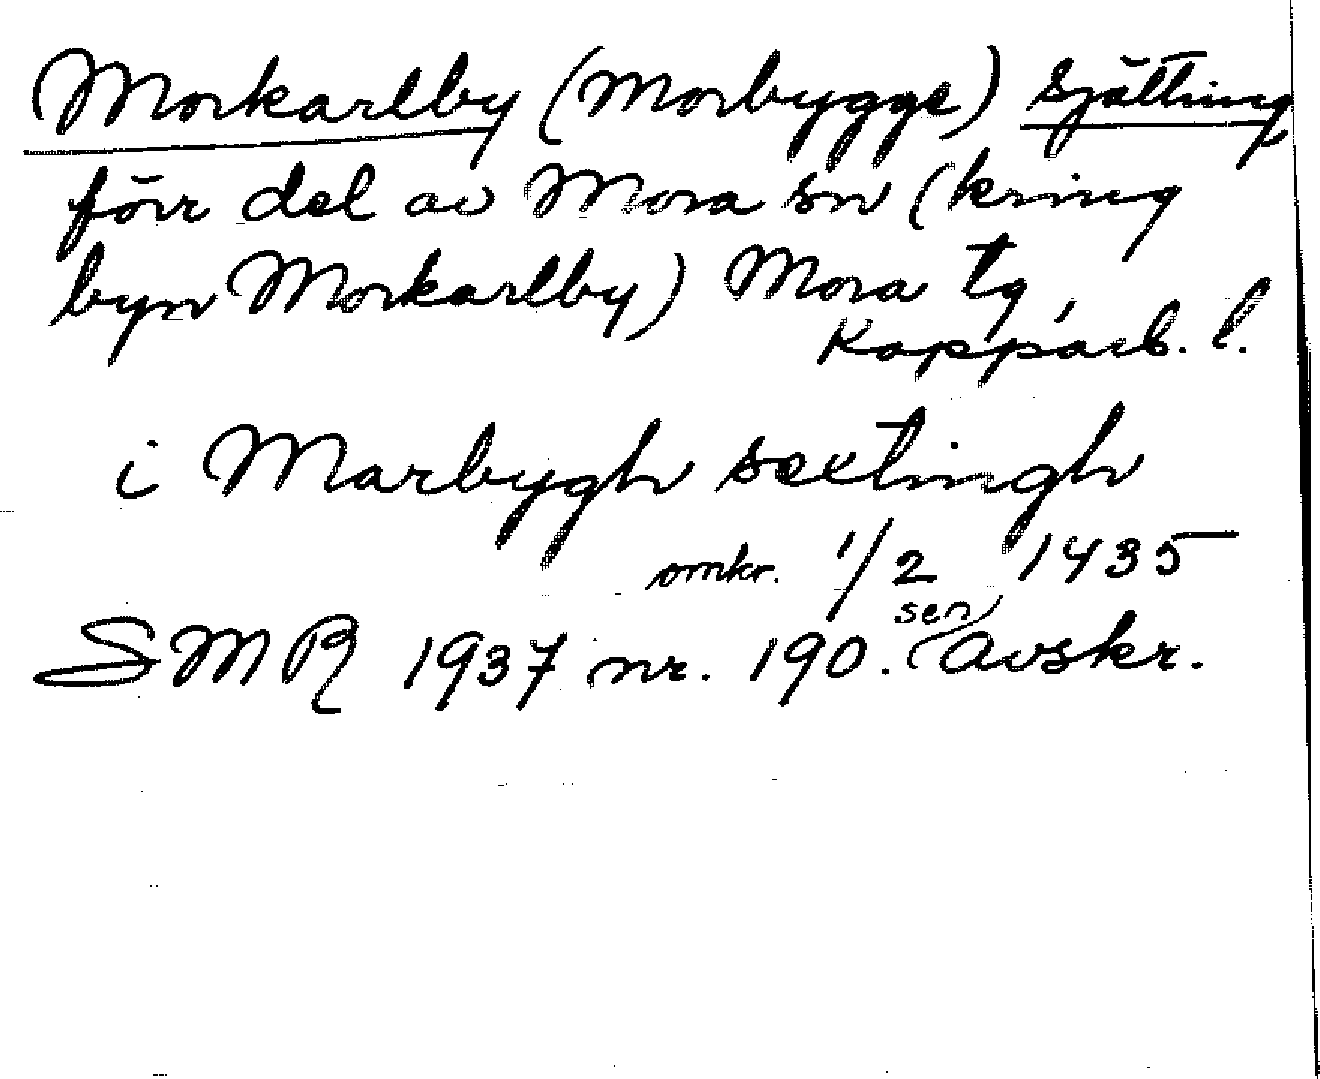 Morkarlby (Morbygge) Sjättning
förr del av Mora sn (kring
byn Morkarlby) Mora tg,
Kopparb. l.
i Marbygh sæetingh
omkr. 1/2 1435
SMR 1937 nr. 190. sen Avskr.